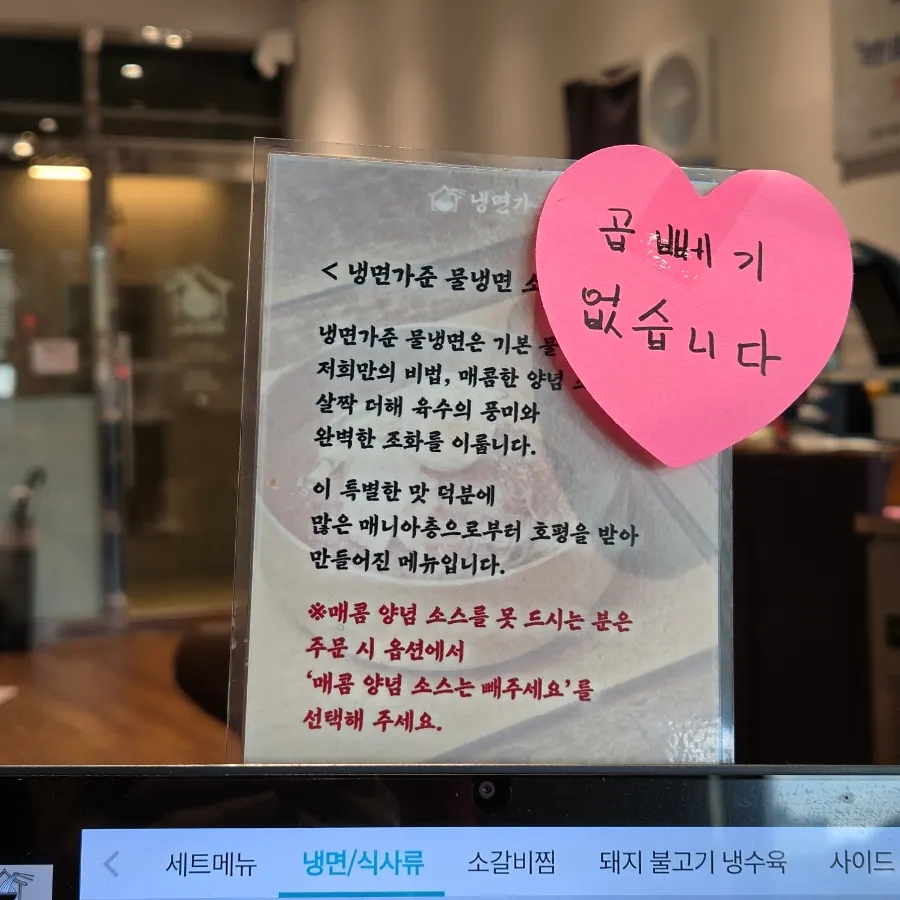 냉면가
곱빼기
없습니다
< 냉면가준 물냉면
냉면가준 물냉면은 기본
저희만의 비법, 매콤한 양념
살짝 더해 육수의 풍미와
완벽한 조화를 이룹니다.
이 특별한 맛 덕분에
많은 매니아층으로부터 호평을 받아
만들어진 메뉴입니다.
※매콤 양념 소스를 못 드시는 분은
주문 시 옵션에서
‘매콤 양념 소스는 빼주세요’를
선택해 주세요.
< 세트메뉴 냉면/식사류 소갈비찜 돼지 불고기 냉수육 사이드